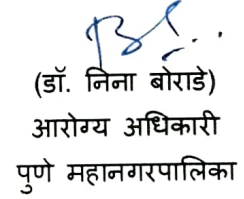 (डॉ. निना बोराडे)
आरोग्य अधिकारी
पुणे महानगरपालिका